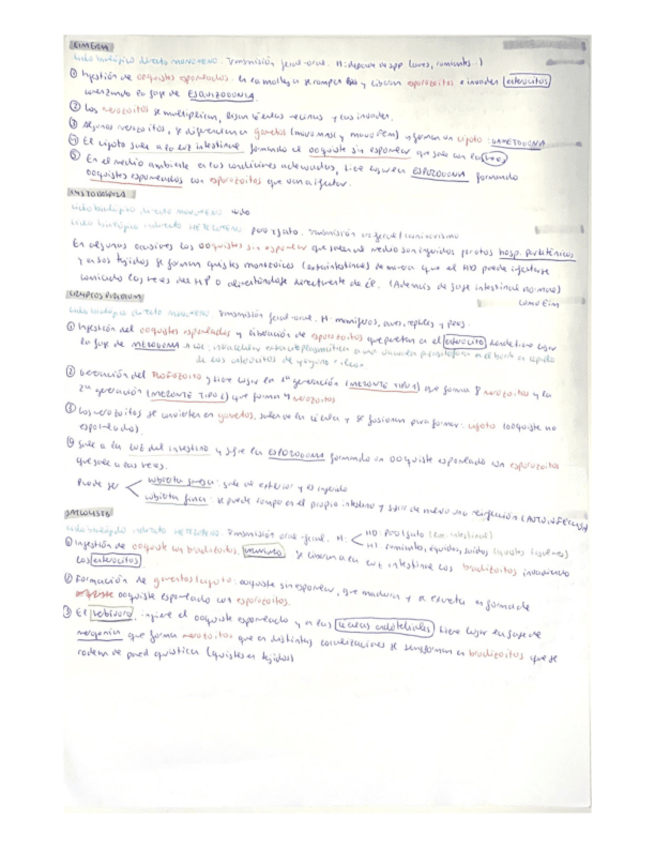 EIMERIA
Ciclo biológico directo MONOXENO. Transmisión fecal-oral. H: depende de spp (aves, rumiantes...)
① Ingestión de ooquistes esporulados. En la molleja se rompen y liberan esporozoitos e invaden enterocitos
comenzando la fase de ESQUIZOGONIA.
② Los merozoitos se multiplican, lisan células vecinas y las invaden.
③ Algunos merozoitos, se diferencian en gametos (macro y micro) y forman un cigoto: GAMETOGONIA
④ El cigoto sale a la luz intestinal formando el ooquiste sin esporular que sale con las heces
⑤ En el medio ambiente en las condiciones adecuadas, tiene lugar la ESPOROGONIA formando
ooquistes esporulados con esporozoitos que van a infectar.
CYSTOISOSPORA
Ciclo biológico directo MONOXENO
Ciclo biológico indirecto HETEROXENO perro y gato. Transmisión fecal / carnivorismo
En algunas ocasiones los ooquistes sin esporular que salen al medio son ingeridos por otros hosp. paraténicos
y en sus tejidos se forman quistes monozoicos (extraintestinales) de manera que el HD puede infectarse
comiendo las del HP o directamente de . (Además de fase intestinal normal)
como Eim
CRYPTOSPORIDIUM
Ciclo biológico directo MONOXENO. Transmisión fecal-oral. H: mamíferos, aves, reptiles y peces.
① Ingestión del ooquistes esporulados y liberación de esporozoitos que penetran en el enterocito donde tiene lugar
la fase de MEROGONIA → intracelular extracitoplasmática en una vacuola parasitófora en el borde en cepillo
de los enterocitos de yeyuno e íleon
② Formación del trofozoito y tiene lugar en 1ª generación (MERONTE TIPO I) que forma 8 merozoitos y la
2ª generación (MERONTE TIPO II) que forma 4 merozoitos
③ Los merozoitos se convierten en gametos, salen de la célula y se fusionan para formar: cigoto (ooquiste no
esporulado).
④ Sale a la luz del intestino y sufre la ESPOROGONIA formando un ooquiste esporulado con esporozoitos
que sale a las heces.
Puede ser < cubierta gruesa: sale al exterior y es ingerido
cubierta fina: se puede romper en el propio intestino y sufrir de nuevo una reinfección (AUTOINFECCIÓN)
SARCOCYSTIS
Ciclo biológico indirecto HETEROXENO. Transmisión oral-fecal. H: < HD: perro/gato (intestinal)
HI: rumiantes, équidos, suidos (quistes tisulares)
① Ingestión de quiste con bradizoitos, se liberan a la luz intestinal los bradizoitos invadiendo
los enterocitos
② Formación de gametos/cigoto: ooquiste sin esporular, que madura y se excreta en forma de
ooquiste esporulado con esporozoitos.
③ El herbívoro, ingiere el ooquiste esporulado y en las células endoteliales tiene lugar la fase de
merogonia que forma merozoitos que en distintas localizaciones se transforman en bradizoitos que se
rodean de pared quística (quistes en tejidos)